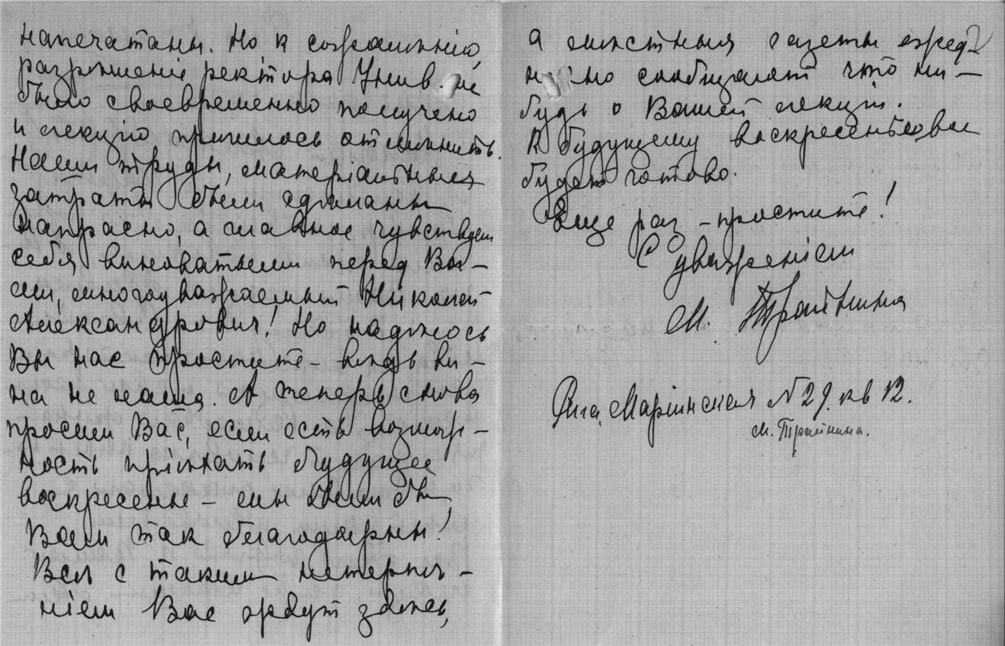 напечатаны. Но к сожалѣнію,
разрѣшеніе ректора Унив. не
было своевременно получено
и лекцію пришлось отложить.
Наши труды, матеріальныя
затраты были сдѣланы
напрасно, а главное чувствуем
себя виноватыми перед Ва-
ми, многоуважаемый Николай
Александрович! Но надѣюсь
Вы нас простите - вѣдь ви-
на не наша. А теперь снова
просим Вас, если есть возмож-
ность пріѣхать будущее
воскресенье - мы были бы
Вам так благодарны!
Всѣ с таким нетерпѣ-
ніем Вас ждут здѣсь,
а мѣстныя газеты ежед-
невно сообщают что ни-
будь о Вашей лекціи.
К будущему воскресенью все
будет готово.
Еще раз - простите!
С уваженіем
М. Трайнина
Рига, Маріинская № 29. кв 12.
М. Трайнина.